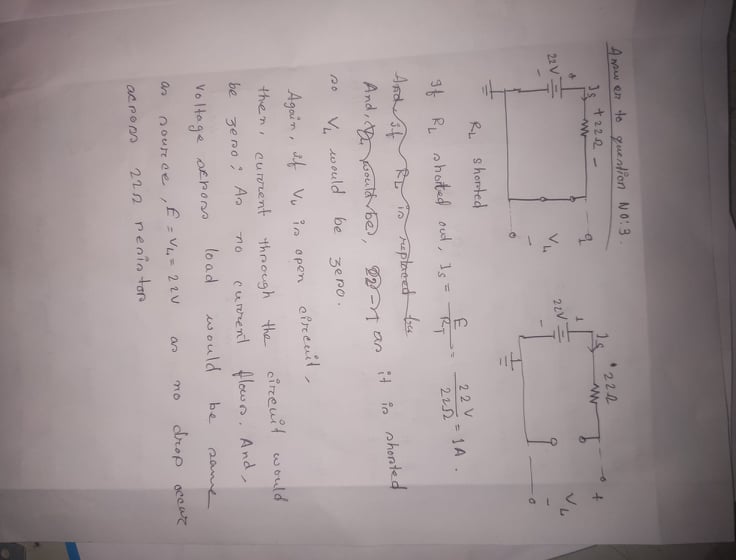 Answer to question No: 3.
Is +22Ω -
+
22V
-
VL
-
Is +22Ω
+
22V
-
+
VL
-
RL shorted
If RL shorted out, Is = E/RT = 22V/22Ω = 1A.
And, if RL is replaced
And, would be, as it is shorted
so VL would be zero.
Again, if VL is open circuit,
then, current through the circuit would
be zero; As no current flows. And,
voltage across load would be same
as source, E = VL = 22V as no drop occur
across 22Ω resistor